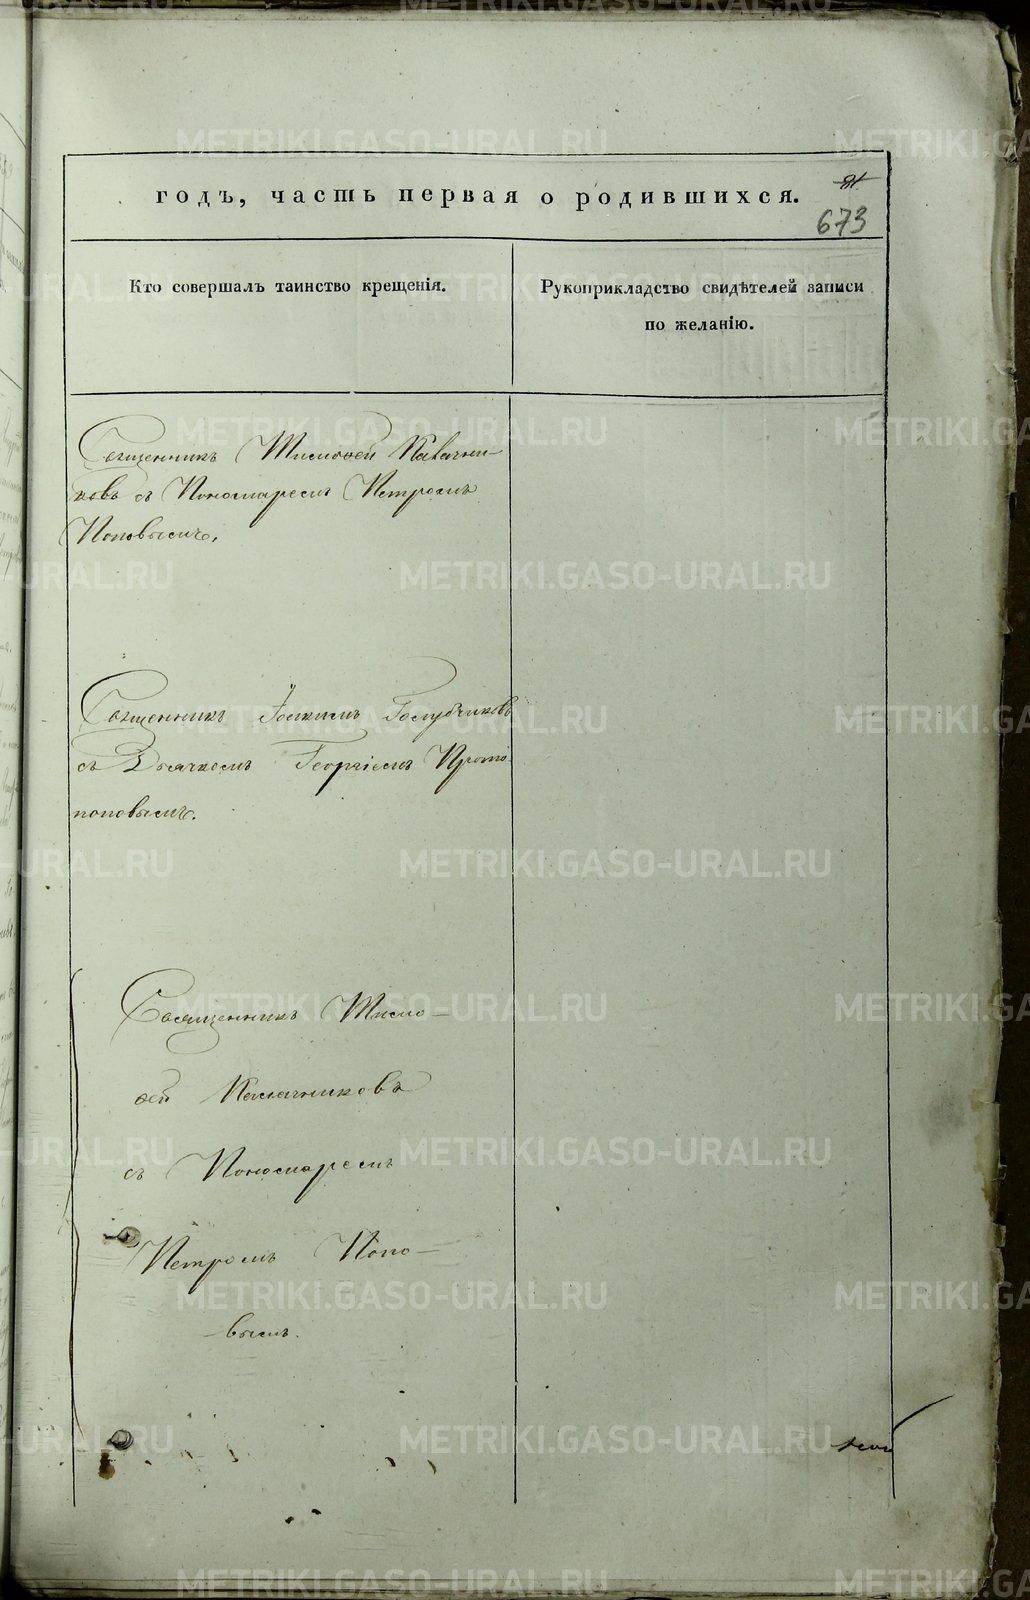 годъ, часть первая о родившихся.
673
Кто совершалъ таинство крещенія.
Рукоприкладство свидѣтелей записи
по желанію.
Священникъ Тимоѳей
съ Пономаремъ Петромъ
Поповымъ.
Священникъ Іоакимъ Голубчиковъ
съ Дьячкомъ Георгіемъ Прото
поповымъ.
Священникъ Тимо-
ѳей Калачниковъ
съ Пономаремъ
Петромъ Попо-
вымъ.
METRIKI.GASO-URAL.RU